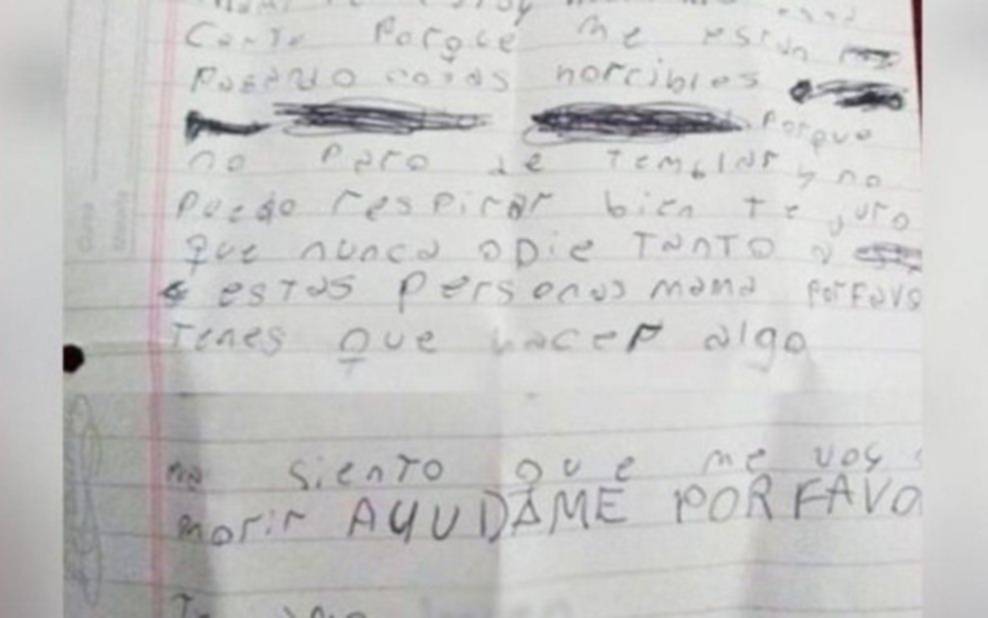 Carta Porqce me están
Pasando cosas horribles
Porque
no Paro de Temblar y no
Puedo respirar bien Te juro
Que nunca odie TanTO a
estas Personas mama PorFavo
Tenes Que hacer algo
siento que me voy
morir AYUDAME POR FAVO